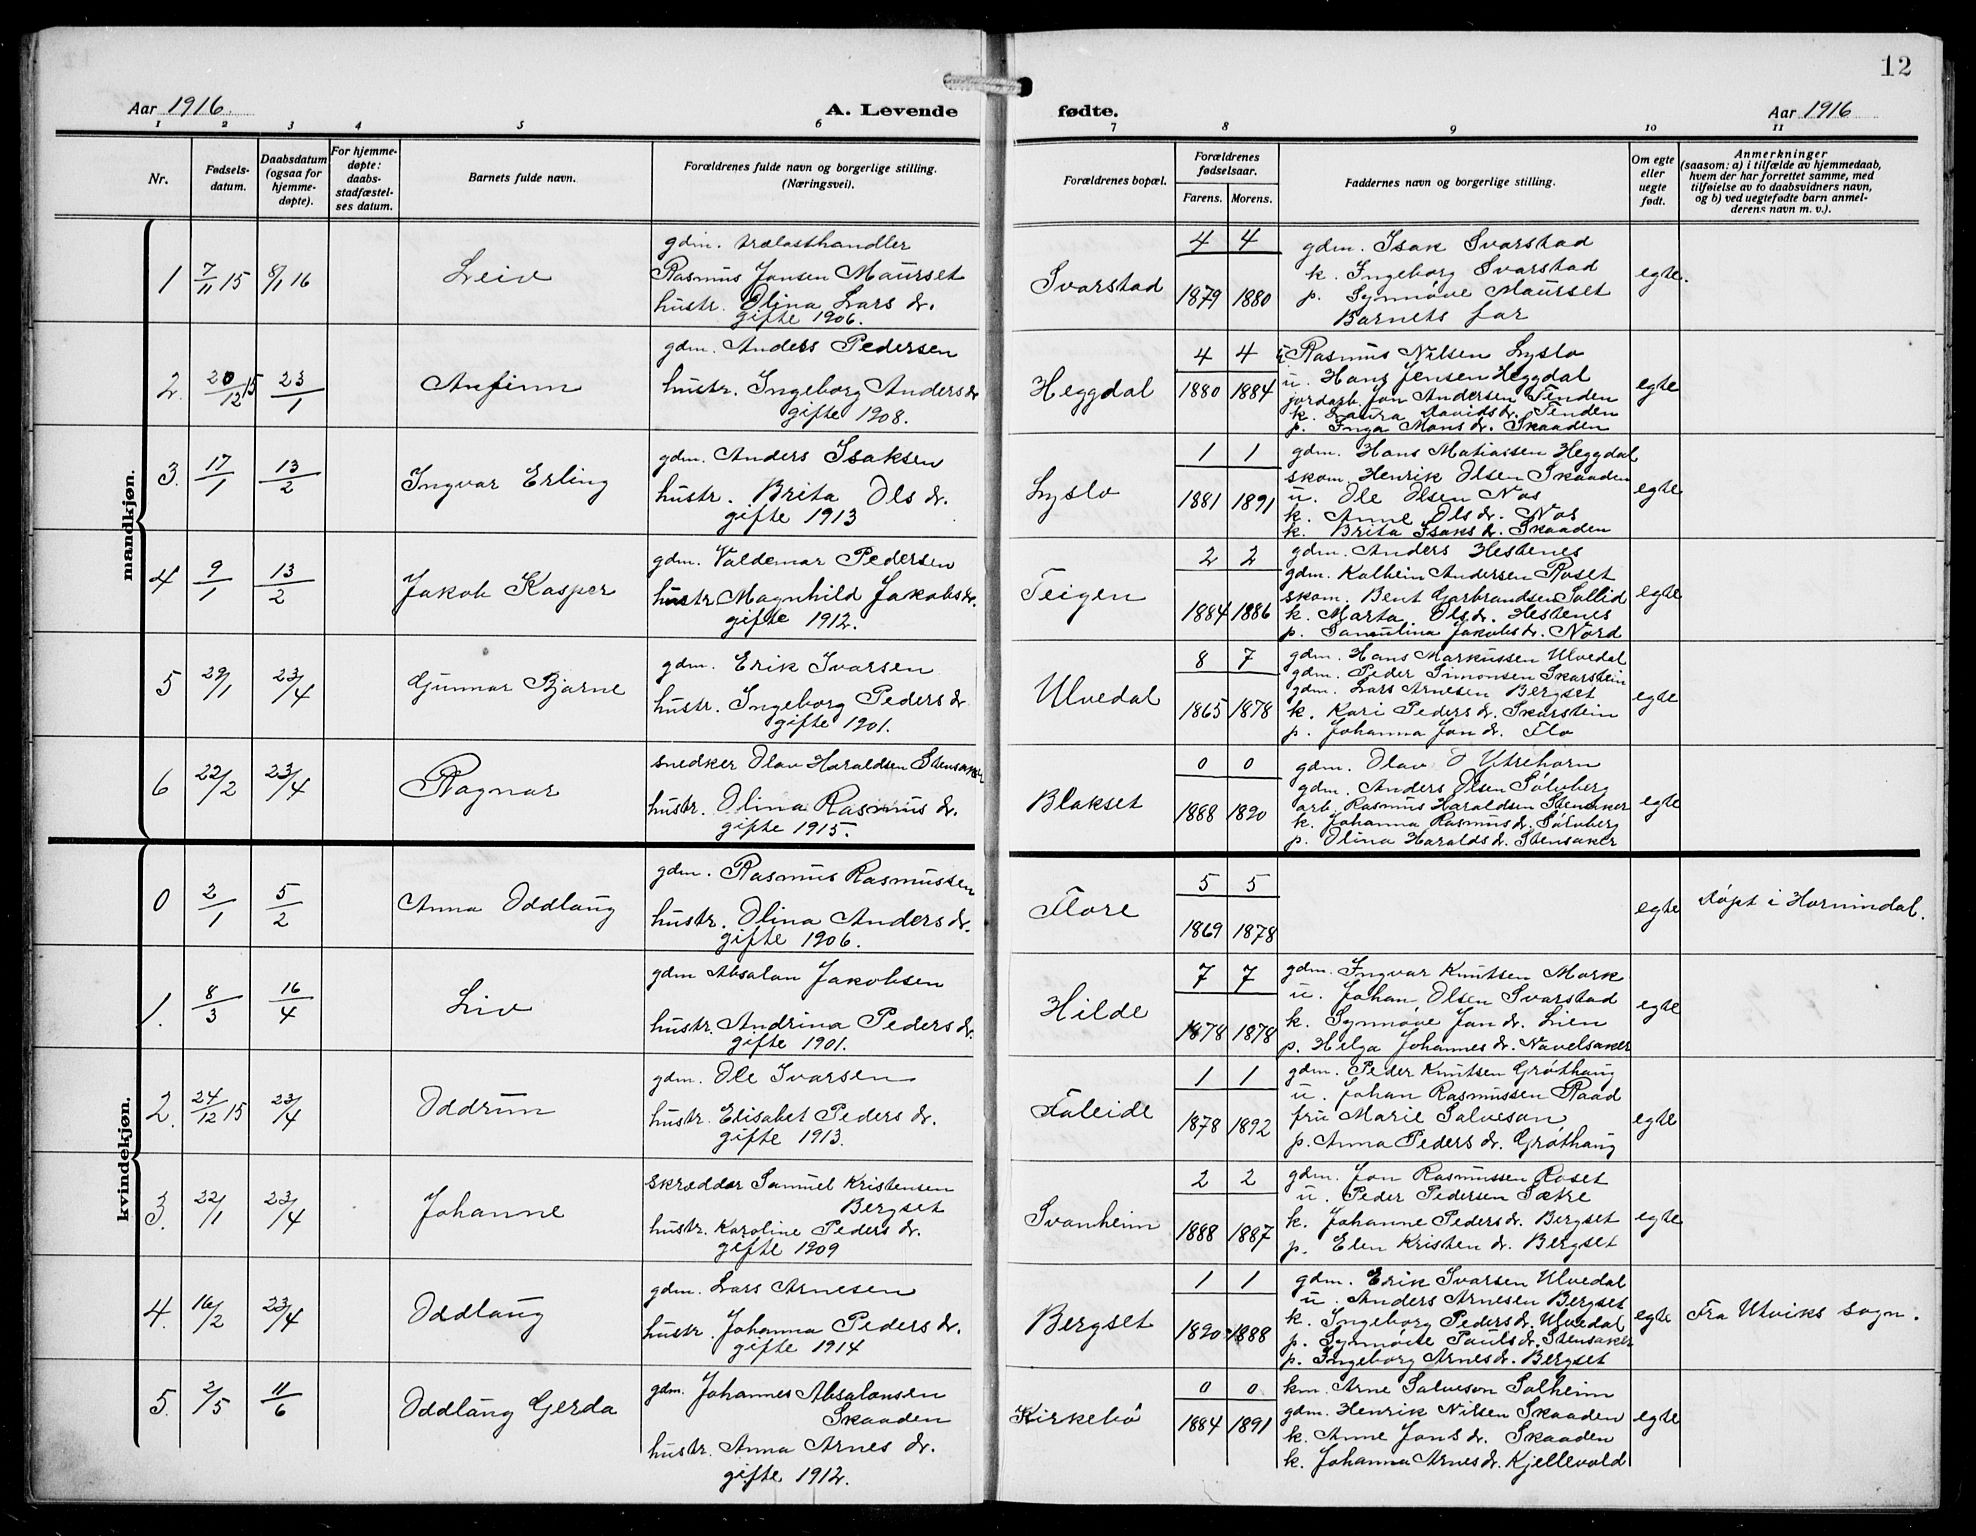 12
Aar 1916
A. Levende fødte.
Aar 1916
1 2 3 4 5 6 7 8 9 10 11
Nr.
Fødsels-
datum.
Daabsdatum
(ogsaa for
hjemme-
døpte).
For hjemme-
døpte:
daabs-
stadfæstel-
ses datum.
Barnets fulde navn.
Forældrenes fulde navn og borgerlige stilling.
(Næringsvei).
Forældrenes bopæl.
Forældrenes
fødselsaar.
Farens. Morens.
Faddernes navn og borgerlige stilling.
Om egte
eller
uegte
født.
Anmerkninger
(saasom: a) i tilfælde av hjemmedaab,
hvem der har forrettet samme, med
tilføielse av to daabsvidners navn,
og b) ved uegtefødte barn anmel-
derens navn m. v.).
mandkjøn.
1 7/11 15 8/1 16 Leiv
gdm. trælasthandler
Rasmus Jansen Maurset
hustr. Olina Lars dr.
gifte 1906.
Svarstad
4 4
1879 1880
gdm. Isak Svarstad
k. Ingeborg Svarstad
p. Synnøve Maurset
Barnets far
egte.
2. 20/12 15 23/1 Anfinn
gdm. Anders Pedersen
hustr. Ingeborg Anders dr
gifte 1908.
Heggdal
4 4
1880 1884
Rasmus Nilsen Lyslo
u. Hans Jensen Heggdal
jordarb. Jon Andersen Tenden
k. Laura Davids dr. Tenden
p. Inga Mons dr. Skaaden
egte
3. 17/1 13/2 Ingvar Erling
gdm. Anders Isaksen
hustr. Brita Ols dr.
gifte 1913
Lyslo
1 1
1881 1891
gdm. Hans Matiasen Heggdal
skom. Henrik Olsen Skaaden
u. Ole Olsen Nos
k. Anne Ols dr. Nos
k. Brita Isaks dr. Skaaden
egte
4 9/1 13/2 Jakob Kasper
gdm. Valdemar Pedersen
hustr Magnhild Jakobs dr.
gifte 1912.
Teigen
2 2
1884 1886
gdm. Anders Hestenes
gdm. Kolbein Andersen Roset
skom. Bent Garbrandsen Sollid
k. Marta Ols dr. Hestenes
p. Samulina Jakobs dr. Nord
egte
5 29/1 23/4 Gunnar Bjarne
gdm. Erik Ivarsen
hustr. Ingeborg Peders dr.
gifte 1901.
Ulvedal
8 7
1865 1878
gdm. Hans Markussen Ulvedal
gdm. Peder Simonsen Skarstein
gdm. Lars Arnesen Bergset
k. Kari Peders dr. Skarstein
p. Johanna Jon dr. Flo
egte
6 22/2 23/4 Ragnar
snedker Olav Haraldsen Stensaker
hustr. Olina Rasmus dr.
gifte 1915.
Blakset
0 0
1888 1820
gdm. Olav O Ytrehorn
gdm. Anders Olsen Sølvberg
arb. Rasmus Haraldsen Stensaker
k. Johanna Rasmus dr. Sølvberg
p. Olina Haralds dr. Stensaker
egte
kvindekjøn.
0 2/1 5/2 Anna Oddlaug
gdm. Rasmus Rasmussen
hustr. Olina Anders dr.
gifte 1906.
Flore
5 5
1869 1878
egte
Døpt i Hornindal.
1. 8/3 16/4 Liv
gdm Absalon Jakobsen
hustr. Andrina Peders dr.
gifte 1901.
Hilde
7 7
1878 1878
gdm. Ingvar Knutsen Mork
u. Johan Olsen Svarstad
k. Synnøve Jon dr. Lien
p. Helga Johannes dr. Navelsaker
egte
2. 24/12 15 23/4 Oddrun
gdm. Ole Ivarsen
hustr. Elisabet Peders dr.
gifte 1913.
Faleide
1 1
1878 1892
gdm. Peder Knutsen Grøthaug
u. Johan Rasmussen Raad
fru Marie Salveson
p. Anna Peders dr. Grøthaug
egte
3. 22/1 23/4 Johanne
skrædder Samuel Kristensen
Bergset
hustr. Karoline Peders dr.
gifte 1909
Svanheim
2 2
1888 1887
gdm. Jon Rasmussen Roset
u. Peder Pedersen Sætre
k. Johanne Peders dr. Bergset
p. Elen Kristen dr. Bergset
egte
4. 16/2 23/4 Oddlaug
gdm. Lars Arnesen
hustr. Johanna Peders dr.
gifte 1914
Bergset
1 1
1820 1888
gdm. Erik Ivarsen Ulvedal
u. Anders Arnesen Bergset
k. Ingeborg Peders dr. Ulvedal
p. Synnøve Pauls dr. Stensaker
p. Ingeborg Arnes dr. Bergset
egte
Fra Utviks sogn.
5. 2/5 11/6 Oddlaug Gerda
gdm. Johannes Absalonsen
Skaaden
hustr. Anna Arnes dr.
gifte 1912.
Kirkebø
0 0
1884 1891
km. Arne Salveson Solheim
gdm. Henrik Nilsen Skaaden
k. Anne Jons dr. Skaaden
k. Johanna Arnes dr. Kjellevold
egte